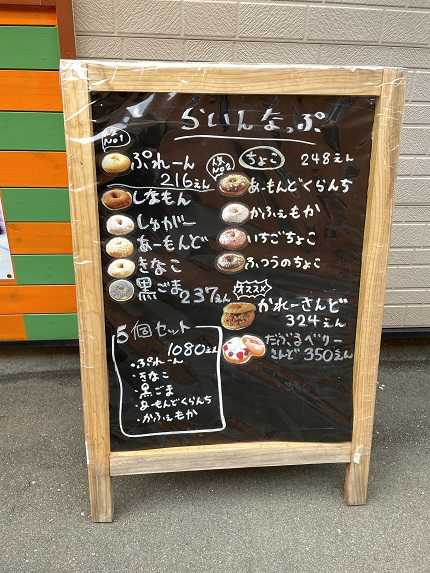 らいんなっぷ
人気
No1
ぷれーん
216えん
しなもん
しゅがー
あーもんど
きなこ
黒ごま 237えん
人気
No1
ちょこ 248えん
あーもんどくらんち
かふぇもか
いちごちょこ
ふつうのちょこ
オススメ
かれーさんど
324えん
だぶるベリー
さんど 350えん
5個セット
1080えん
・ぷれーん
・きなこ
・黒ごま
・あーもんどくらんち
・かふぇもか